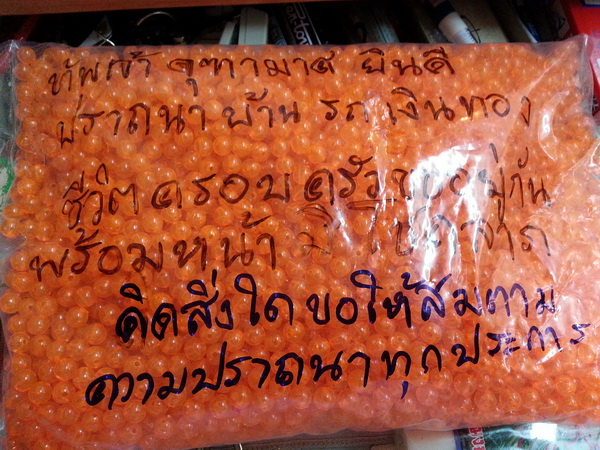 ข้าพเจ้า จุฑามาศ ยินดี
ปราถนา บ้าน รถ เงินทอง
ชีวิตครอบครัว
พร้อมหน้า มี
คิดสิ่งใดขอให้สมตาม
ความปราถนาทุกประการ